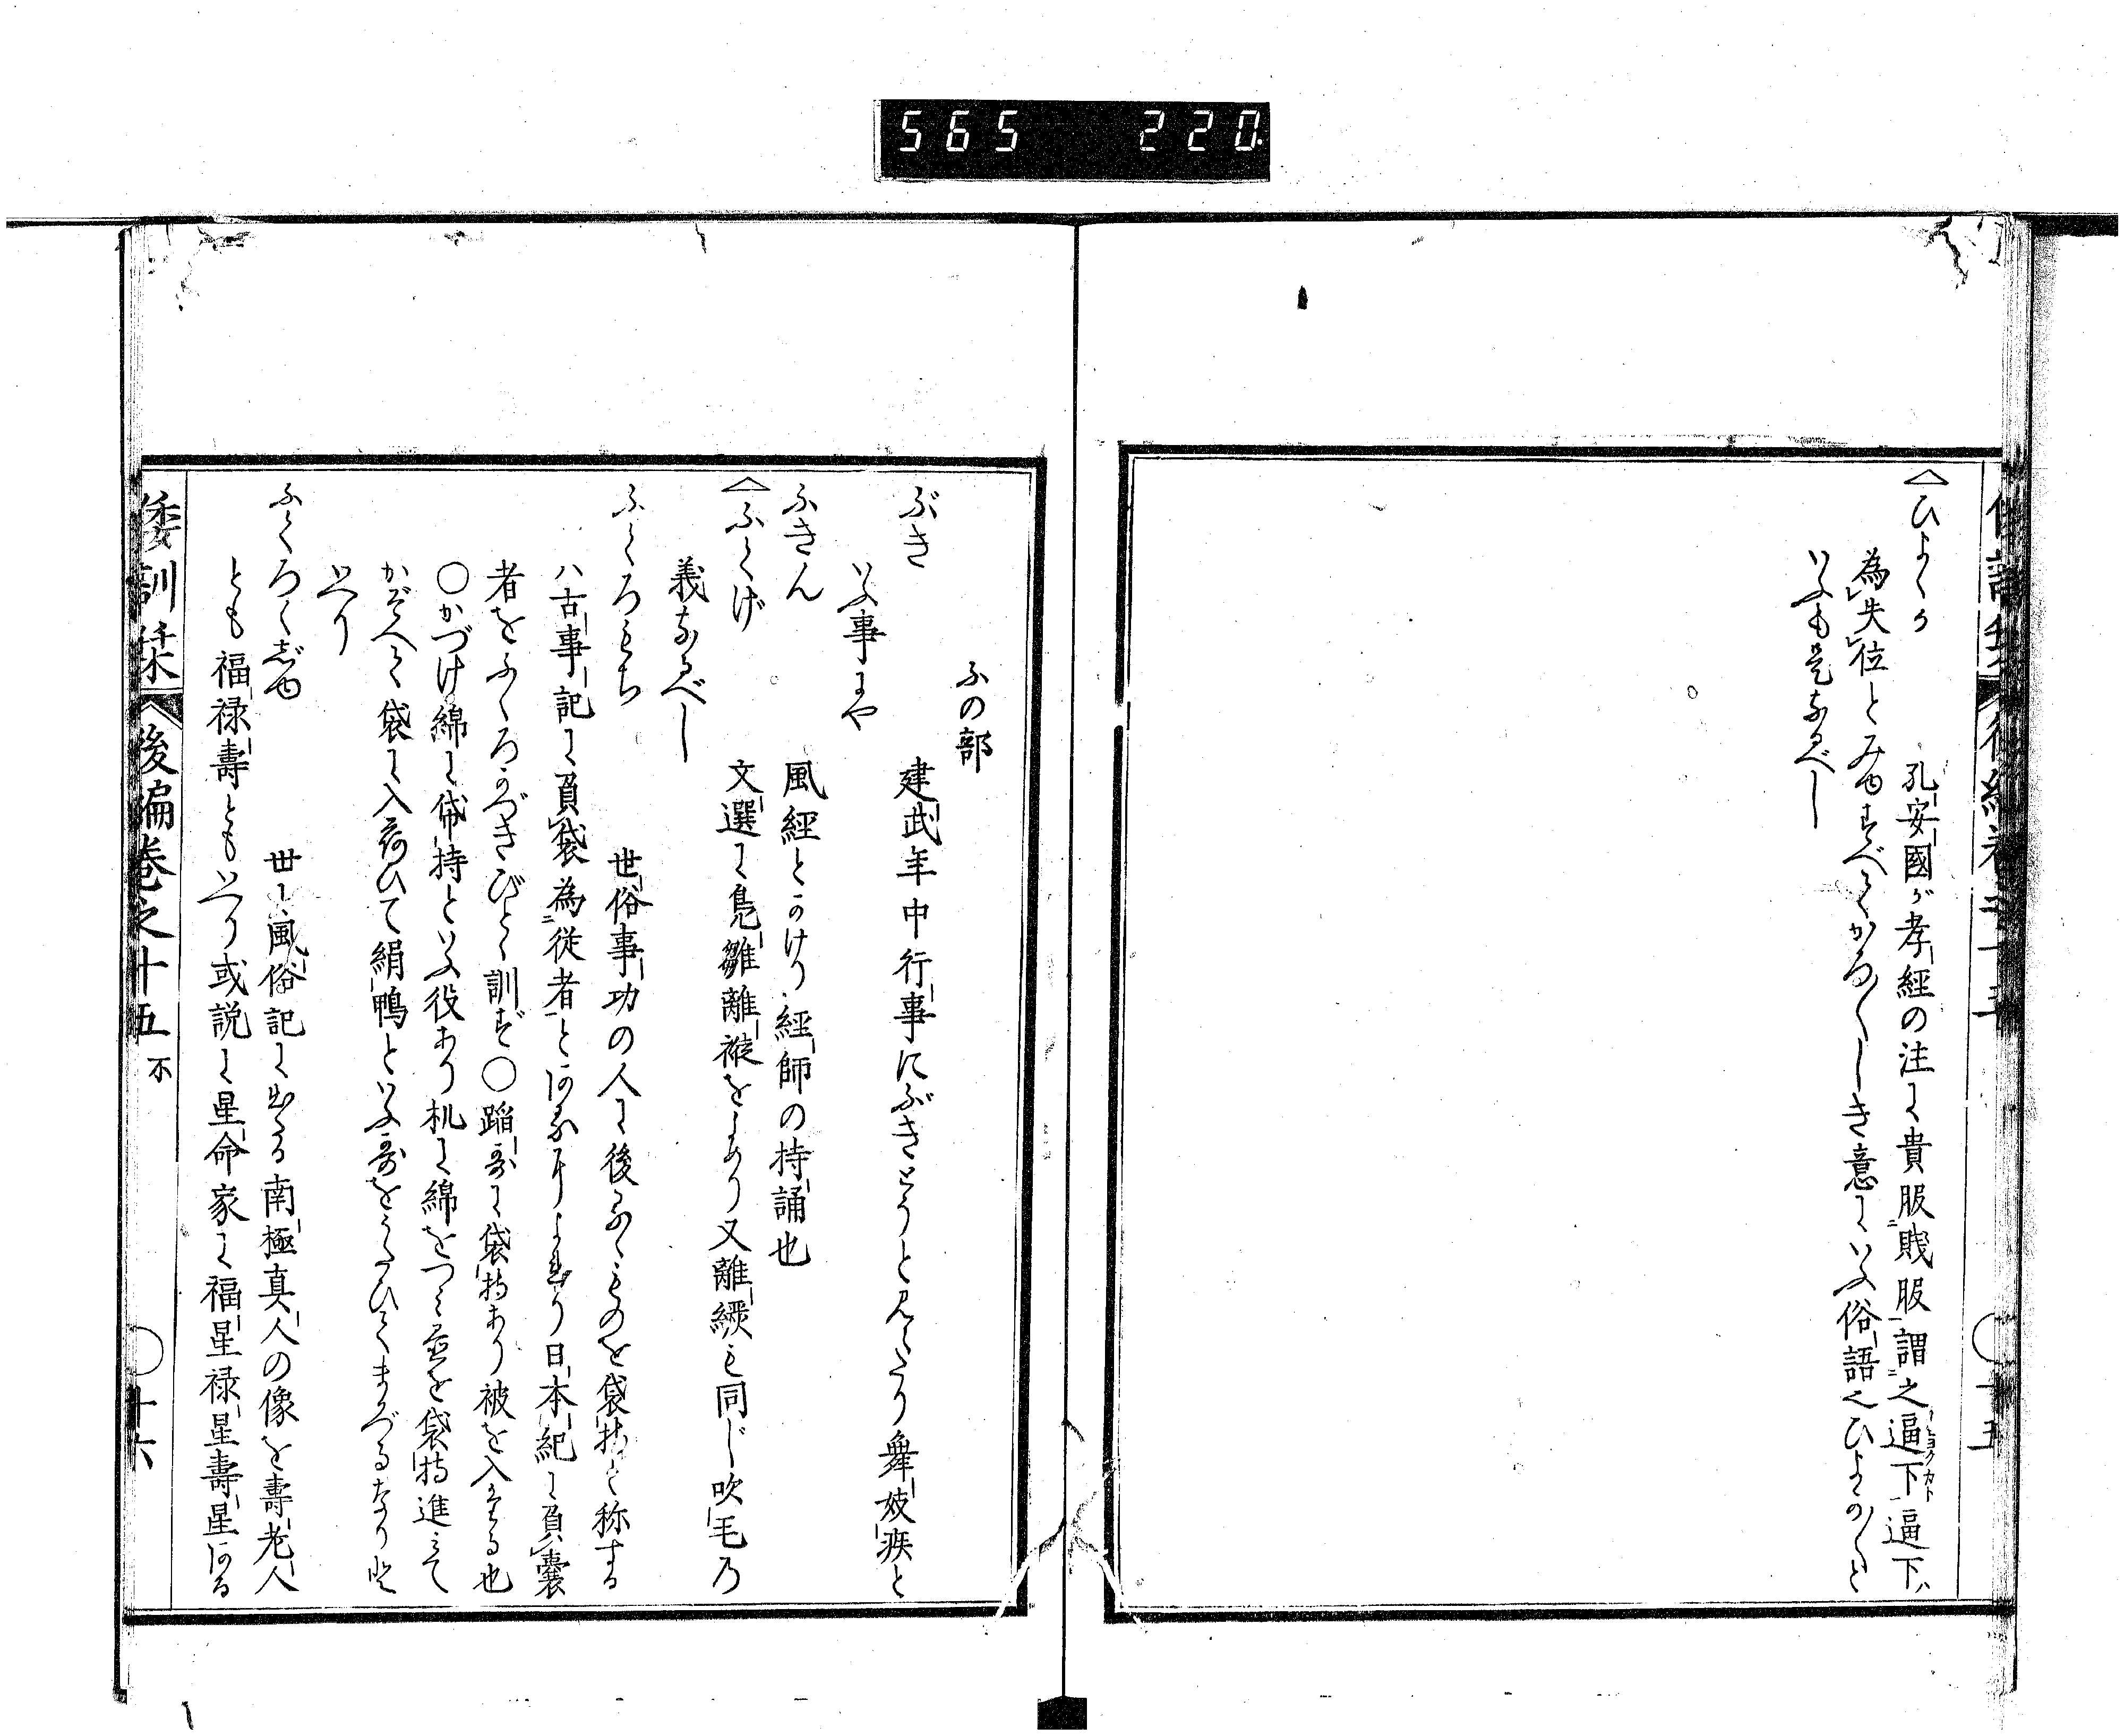 565 220
倭訓栞 後編巻之十五 〇十五
ひよくか 孔安國ガ孝經の注に貴服賤服謂之逼下逼下ハ
為失位とみゆすべてかる〴〵しき意にいふ俗語にひよかひよかと
いふも是なるべし
ふの部
ぶき 建武年中行事にぶきとうと見えたり舞妓疾と
いふ事にや
ふきん 風經とかけり經師の持誦也
ふくげ 文選に鳧雛離褷をよめり又離縰も同じ吹毛乃
義なるべし
ふくろもち 世俗事功の人に後るゝものを袋持と称する
ハ古事記に負袋為従者とあるによれり日本紀に負嚢
者をふくろかづきびとゝ訓ず〇蹈哥に袋持あり被を入るゝ也
〇かづけ綿に帒持といふ役あり机に綿をつみ置を袋持進みて
かぞへて袋に入荷ひて絹鴨といふ哥をうたひてまかづるなりと
いへり
ふくろくじゆ 世に風俗記に出たる南極真人の像を壽老人
とも福禄壽ともいへり或説に星命家に福星禄星壽星ある
倭訓栞 後編巻之十五 不 〇十六